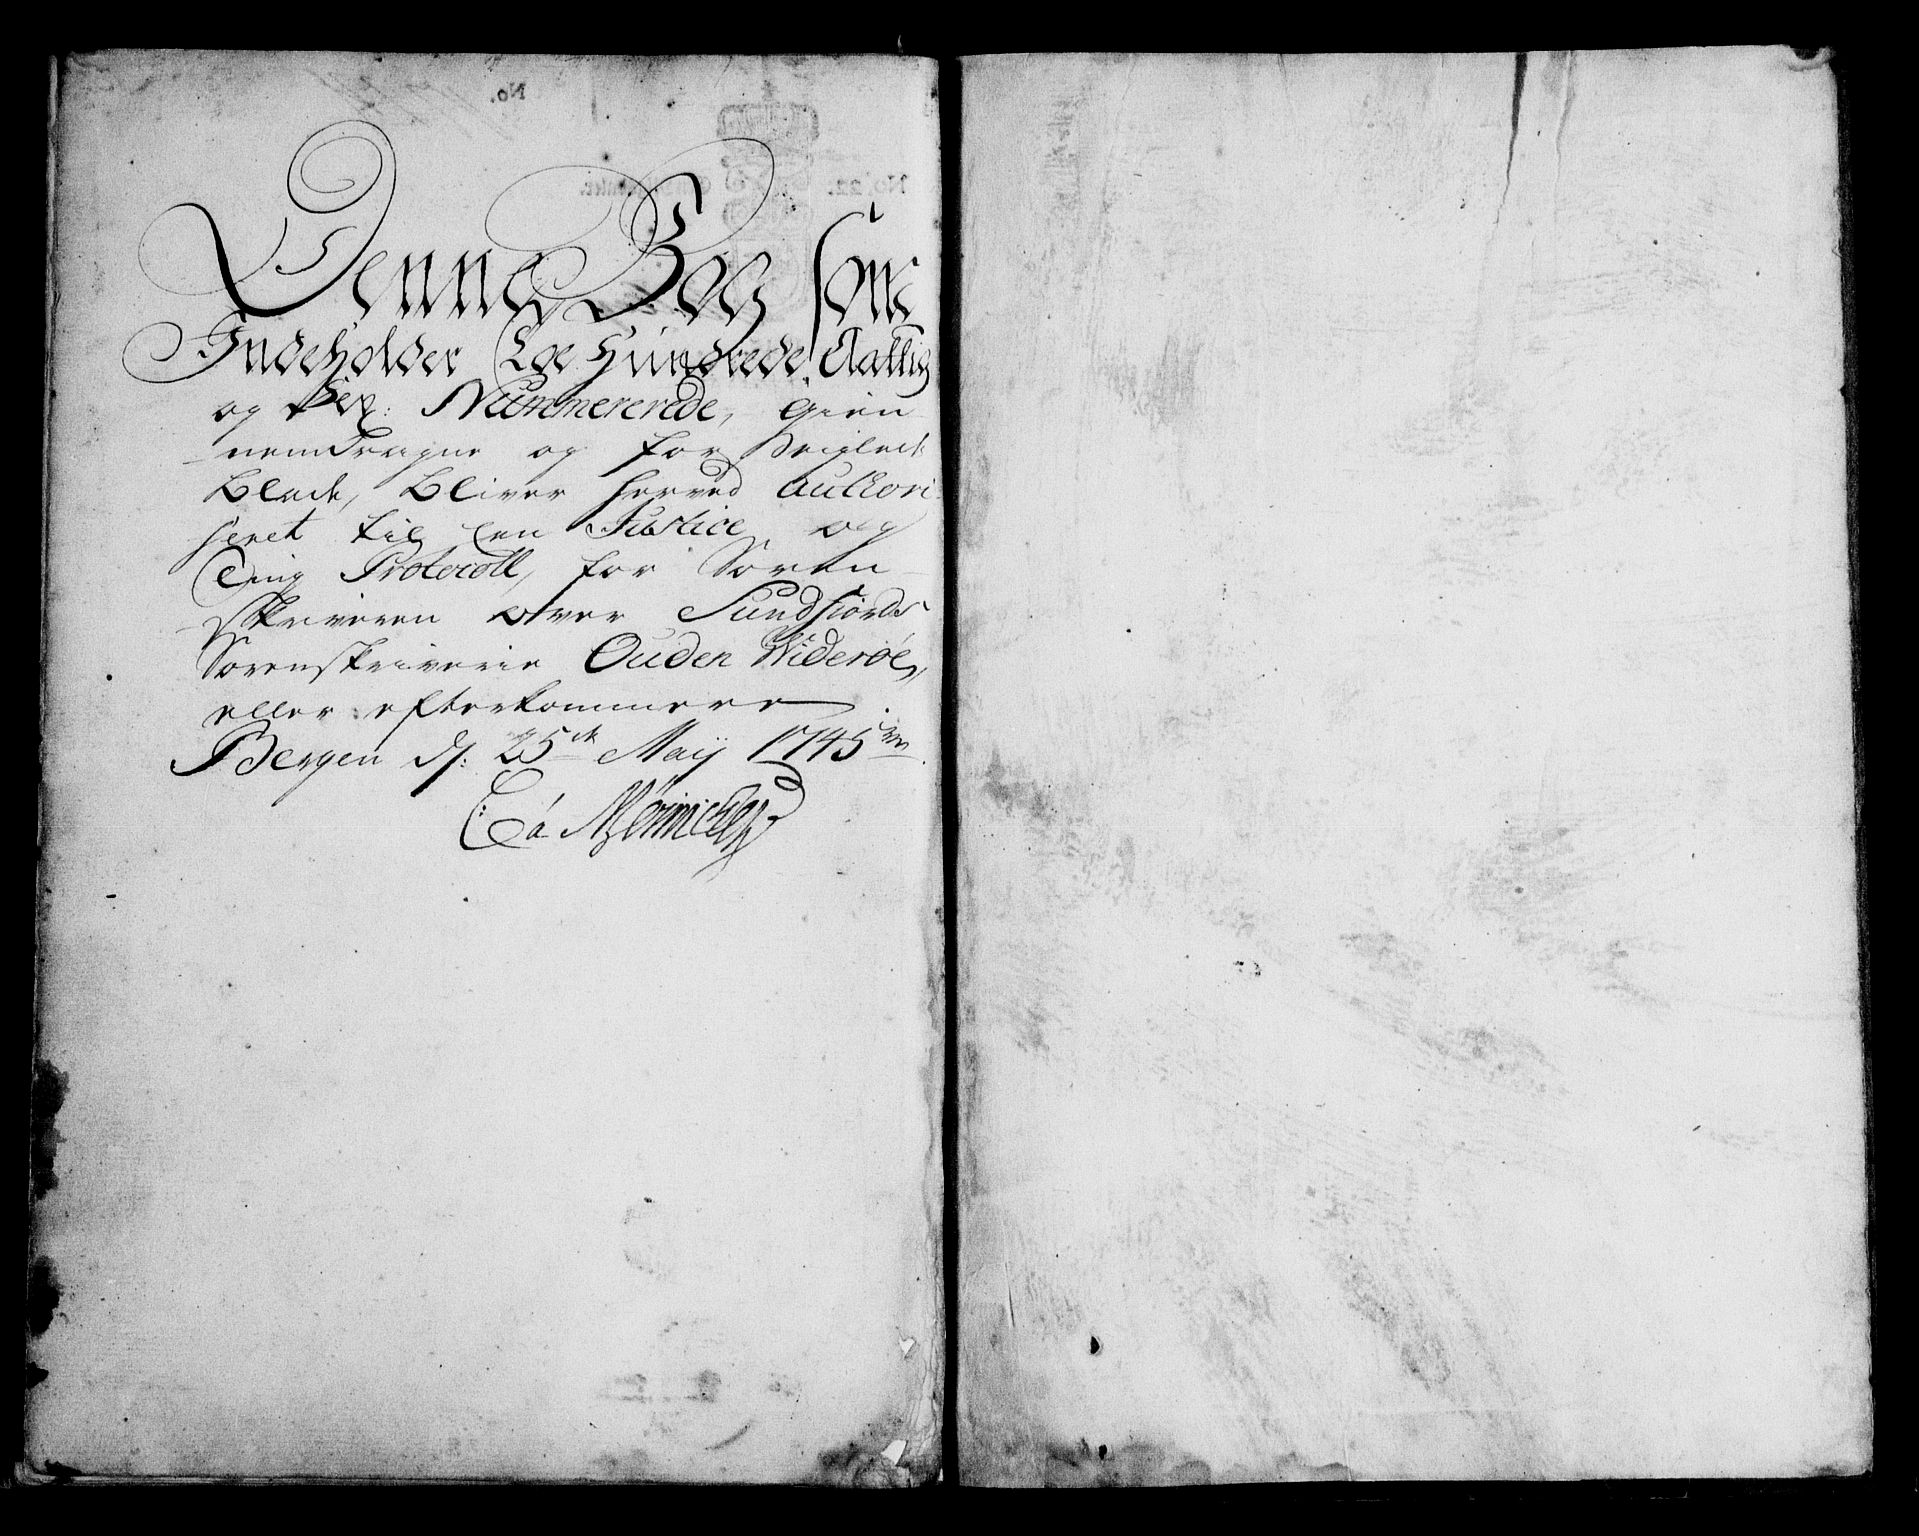 Denne Bog som
Indeholder Toe Hundrede, Aattig
og Sex: Nummererede, gien
nemdragne og forseiglede
blade, bliver herved authori
seret til een Justice og
Ting Protocoll, for Soren
skriveren over Sundfiords
Sorenskriverie Ouden Widerøe,
eller efterkommere
Bergen dj: 25de Maij 1745